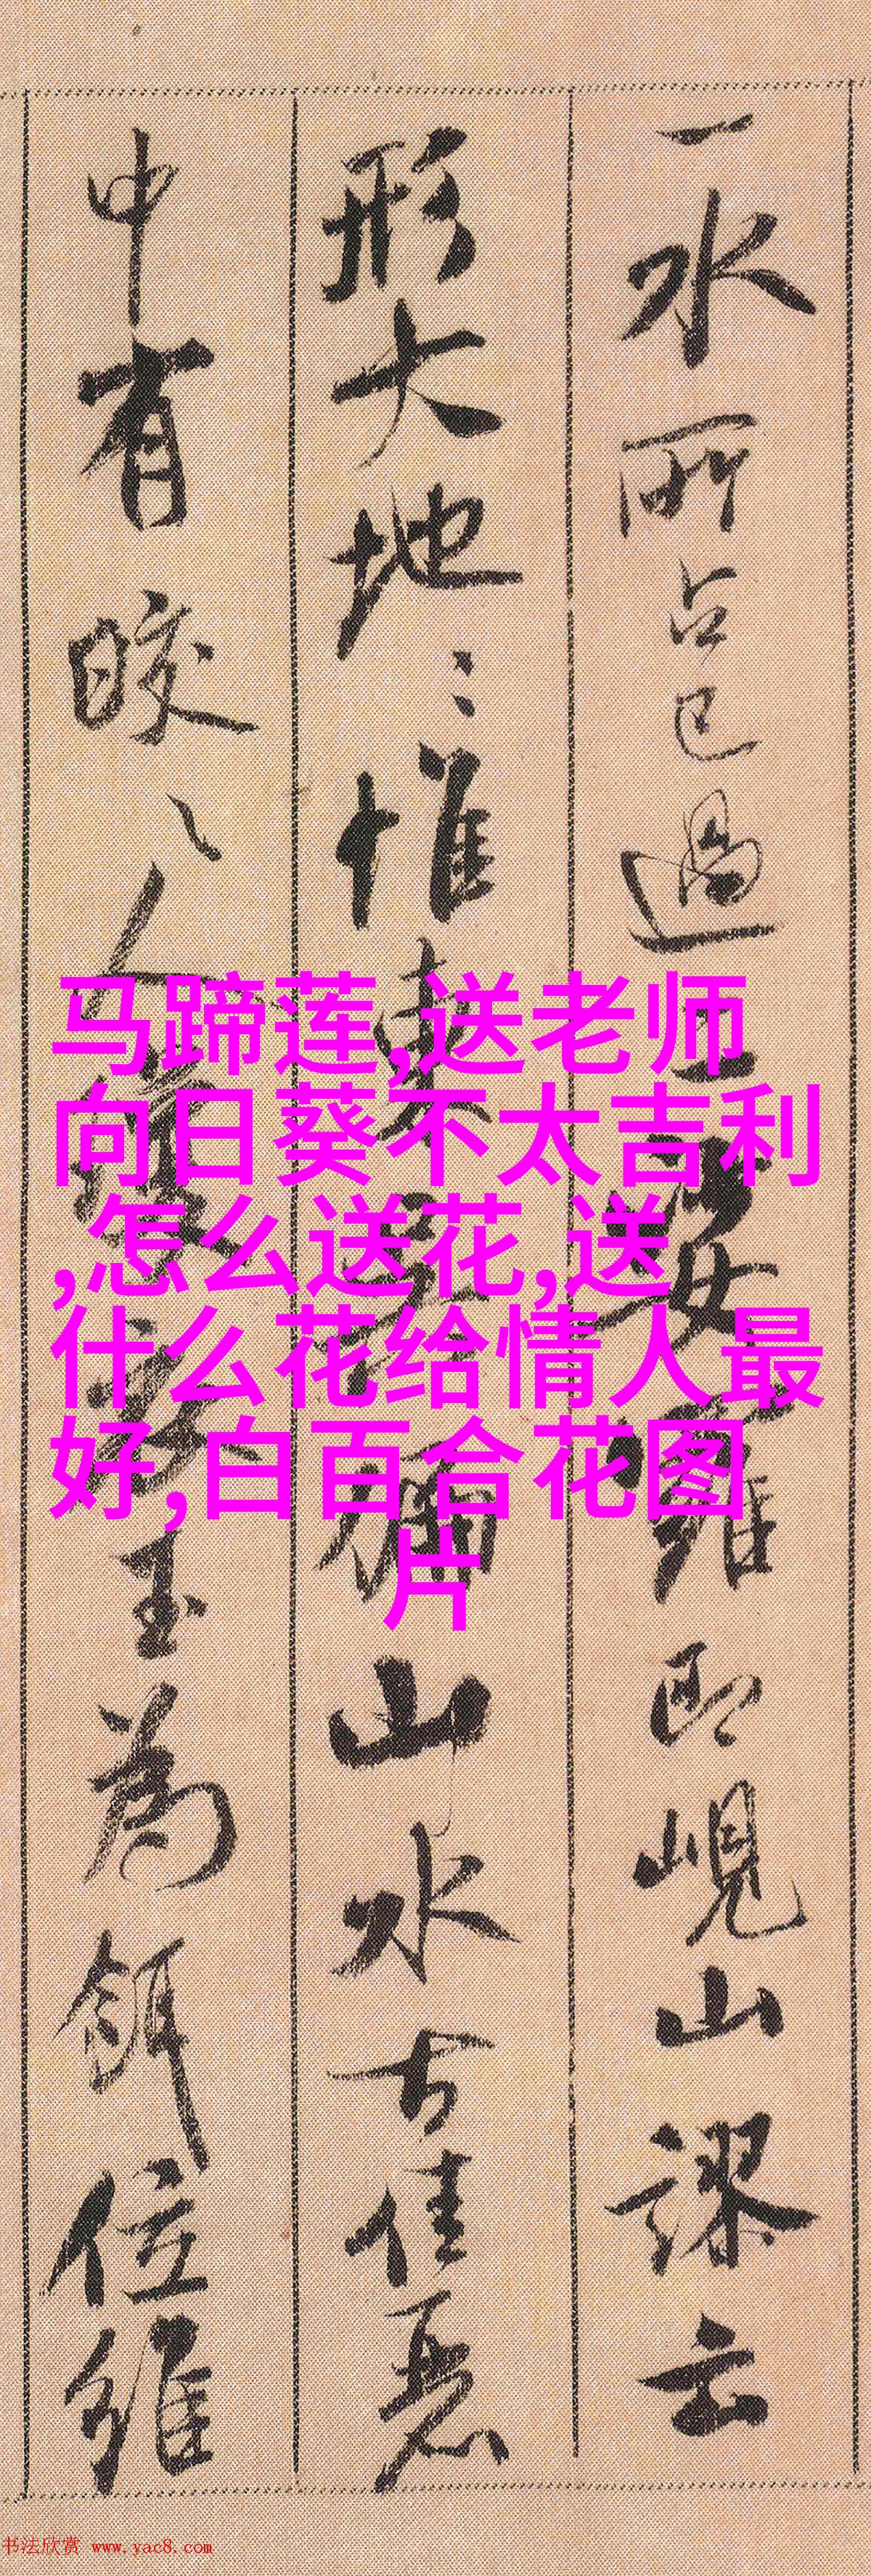 一水所占已過
形大地〻惟東
山水古佳惡
中有皎〻人
玉為餌位維
即峴山謬云
马蹄莲,送老师
向日葵不太吉利
,怎么送花,送
什么花给情人最
好,白百合花图
片
书法欣赏 www.yac8.com